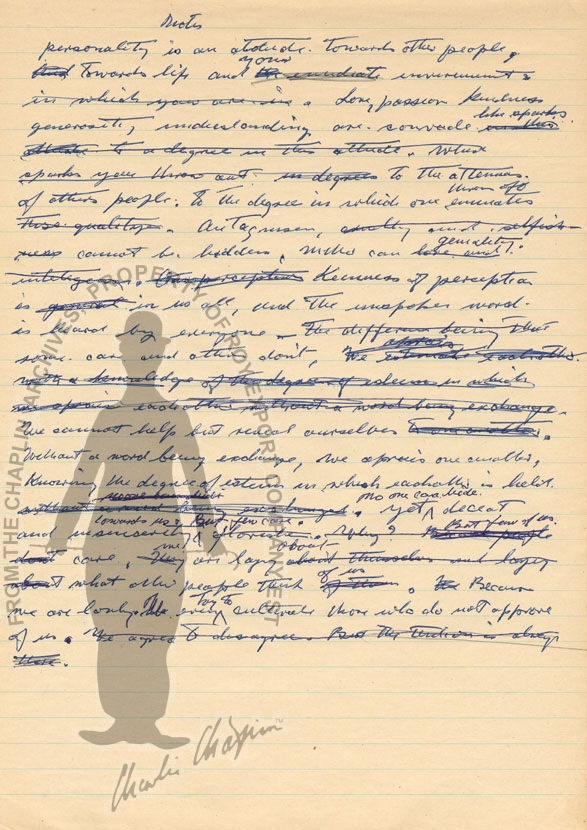 Notes
personality is an atatude. towards other people,
your
and Towards life and the immediate inveremment
in which you are in. Love, passion kindness
like sparks
generosity, understanding are
to a degree in this attude. When
sparks you throw out in degrees to the attenson
of others people. To the degree in which one emenates
thrown off
These qualities. Antagnism, and selfish-
ness cannot be hidden, neither can love and
geniality
intelligence. The perception Keenness of perception
is general in us all, and the unspoken word
is heard by everyone. The difference being that
some care and other don't, We estimate eachother.
apreis
with a knowledge of the degree of esteem in which
we apreis eachother without a word being exchange.
We cannot help but reveal ourselves to one another.
Without a word being exchange, we apreis one another,
Knowing the degree of esteem in which eachother is held.
no one can hide.
without a word being exchanged. yet deceat
towards us. But few care.
and insincerity Why?
But few of us
dont care, They are lazy about themselves and lazy
about
about what other peaple think of them. We Because
of us
we are lonely. We even cultivate those who do not approve
try to
of us. We agree to disagree. But the tention is always
there.
FROM THE CHAPLIN ARCHIVES, PROPERTY OF ROY EXPORT COMPANY EST
Charlie Chaplin™